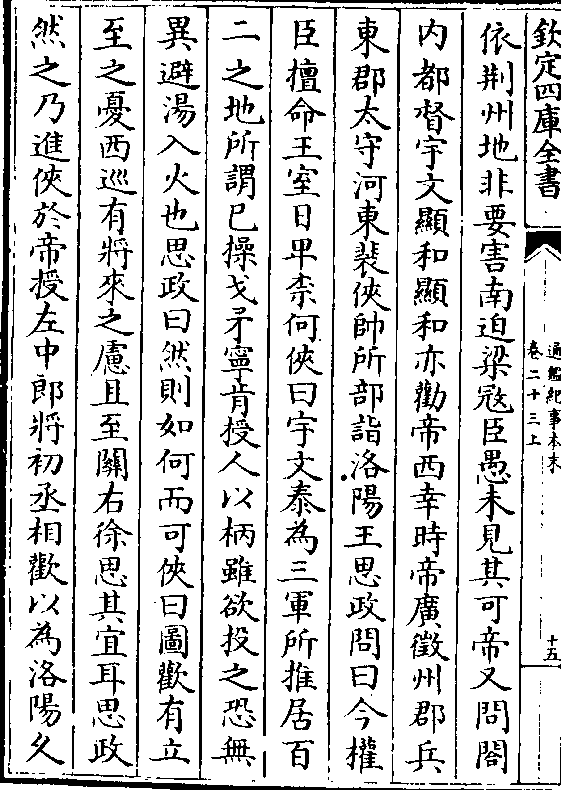 欽定四庫全書
通鑑紀事本末
卷二十三上
十五
依荆州地非要害南迫梁寇臣愚未見其可帝又問閤
内都督宇文顯和顯和亦勸帝西幸時帝廣徵州郡兵
東郡太守河東裴俠帥所部詣洛陽王思政問曰今權
臣擅命王室日卑柰何俠曰宇文泰為三軍所推居百
二之地所謂已操戈矛寧肯授人以柄雖欲投之恐無
異避湯入火也思政曰然則如何而可俠曰圖歡有立
至之憂西巡有將來之慮且至關右徐思其宜耳思政
然之乃進俠於帝授左中郎將初丞相歡以為洛陽久